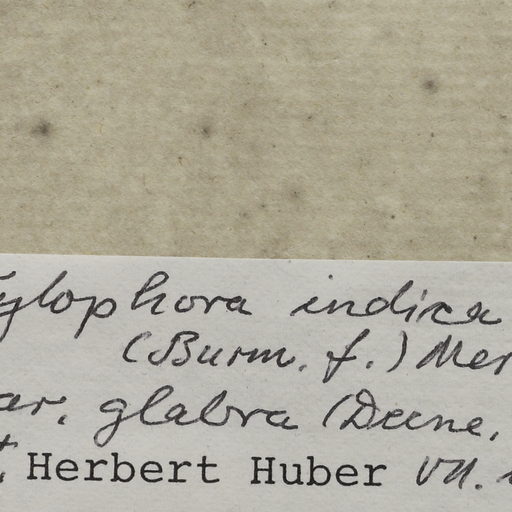 Tylophora indica
(Burm. f.) Mer
ar. glabra (Decne.
t. Herbert Huber VII.